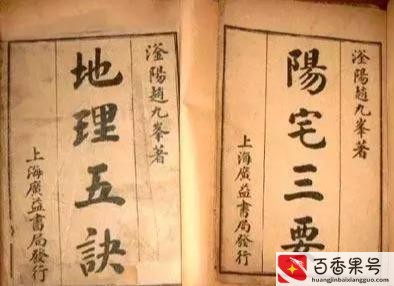 滏陽趙九峯著
陽宅三要
上海廣益書局發行
滏陽趙九峯著
地理五訣
上海廣益書局發行
百香果号
huangjinbaixiangguo.com